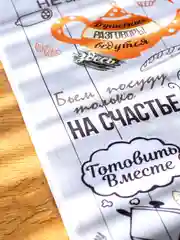 Душевные
РАЗГОВОРЫ
ведутся
здесь
Бьем посуду
только
НА СЧАСТЬЕ
Готовить
Вместе